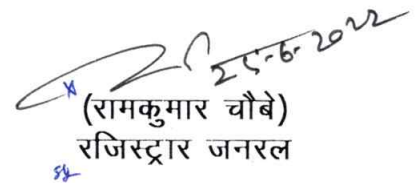 25-6-2022
(रामकुमार चौबे)
रजिस्ट्रार जनरल